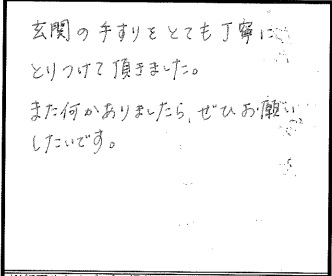 玄関の手すりをとても丁寧に
とりつけて頂きました。
また何かありましたら、ぜひお願い
したいです。